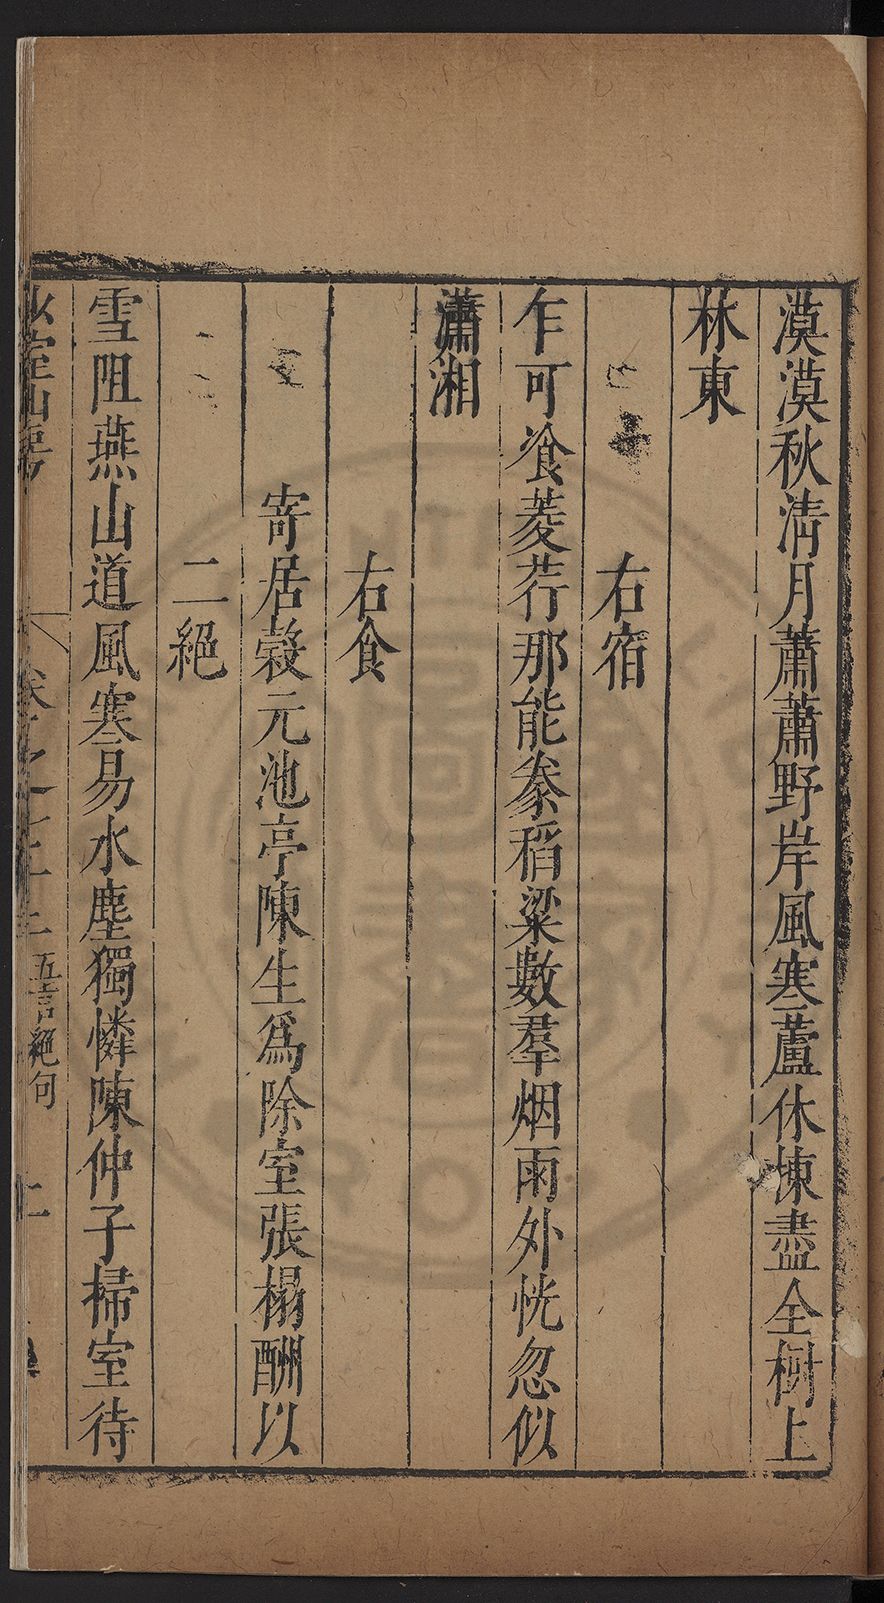 漠漠秋清月蕭蕭野岸風寒蘆休揀盡全樹上
林東
右宿
乍可飡菱荇那能豢稻粱數羣烟雨外恍忽似
瀟湘
右食
寄居穀元池亭陳生爲除室張榻酬以
二絕
雪阻燕山道風寒易水塵獨憐陳仲子掃室待
山房
卷之二十二 五言絕句 二